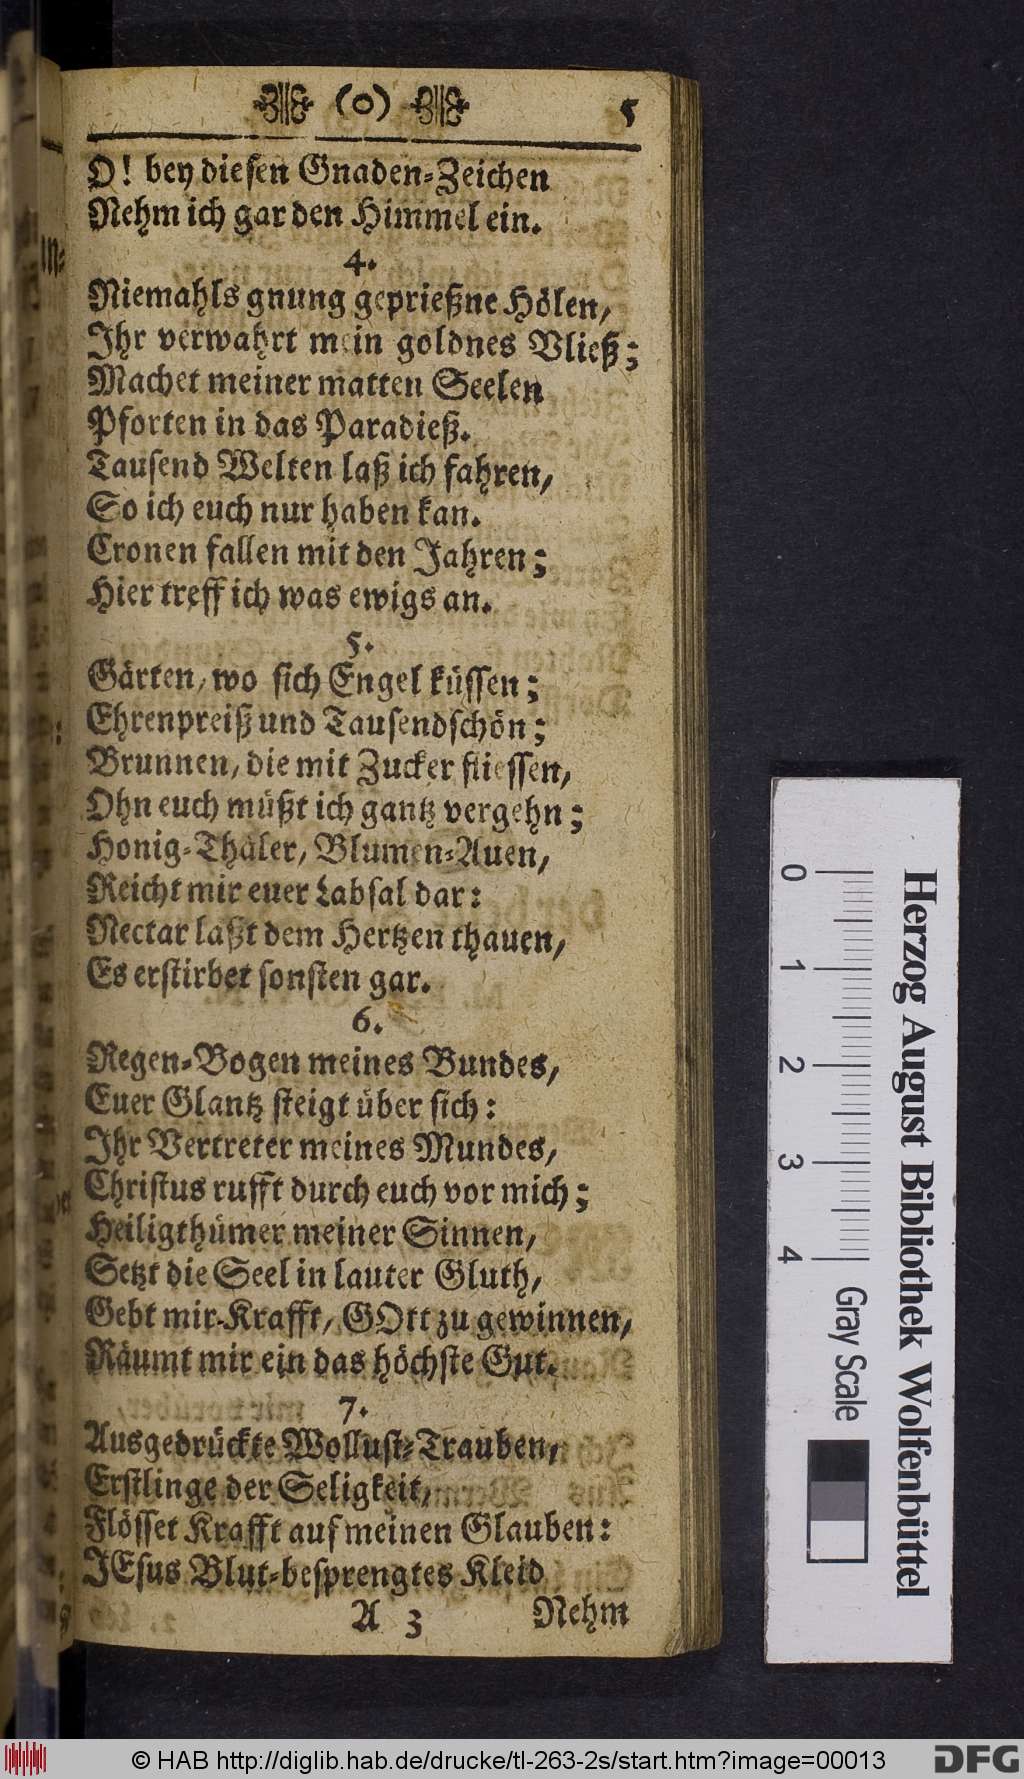 (o) 5
O! bey diesen Gnaden-Zeichen
Nehm ich gar den Himmel ein.
4.
Niemahls gnung geprießne Hölen,
Ihr verwahrt mein goldnes Vließ;
Machet meiner matten Seelen
Pforten in das Paradieß.
Tausend Welten laß ich fahren,
So ich euch nur haben kan.
Cronen fallen mit den Jahren;
Hier treff ich was ewigs an.
5.
Gärten, wo sich Engel küssen;
Ehrenpreiß und Tausendschön;
Brunnen, die mit Zucker fliessen,
Ohn euch müßt ich gantz vergehn;
Honig-Thäler, Blumen-Auen,
Reicht mir euer Labsal dar:
Nectar laßt dem Hertzen thauen,
Es erstirbet sonsten gar.
6.
Regen-Bogen meines Bundes,
Euer Glantz steigt über sich:
Ihr Vertreter meines Mundes,
Christus rufft durch euch vor mich;
Heiligthümer meiner Sinnen,
Setzt die Seel in lauter Gluth,
Gebt mir Krafft, GOtt zu gewinnen,
Räumt mir ein das höchste Gut.
7.
Ausgedrückte Wollust-Trauben,
Erstlinge der Seligkeit,
Flösset Krafft auf meinen Glauben:
JEsus Blut-besprengtes Kleid
A 3 Nehm
Herzog August Bibliothek Wolfenbüttel
0 1 2 3 4 Gray Scale
© HAB http://diglib.hab.de/drucke/tl-263-2s/start.htm?image=00013
DFG